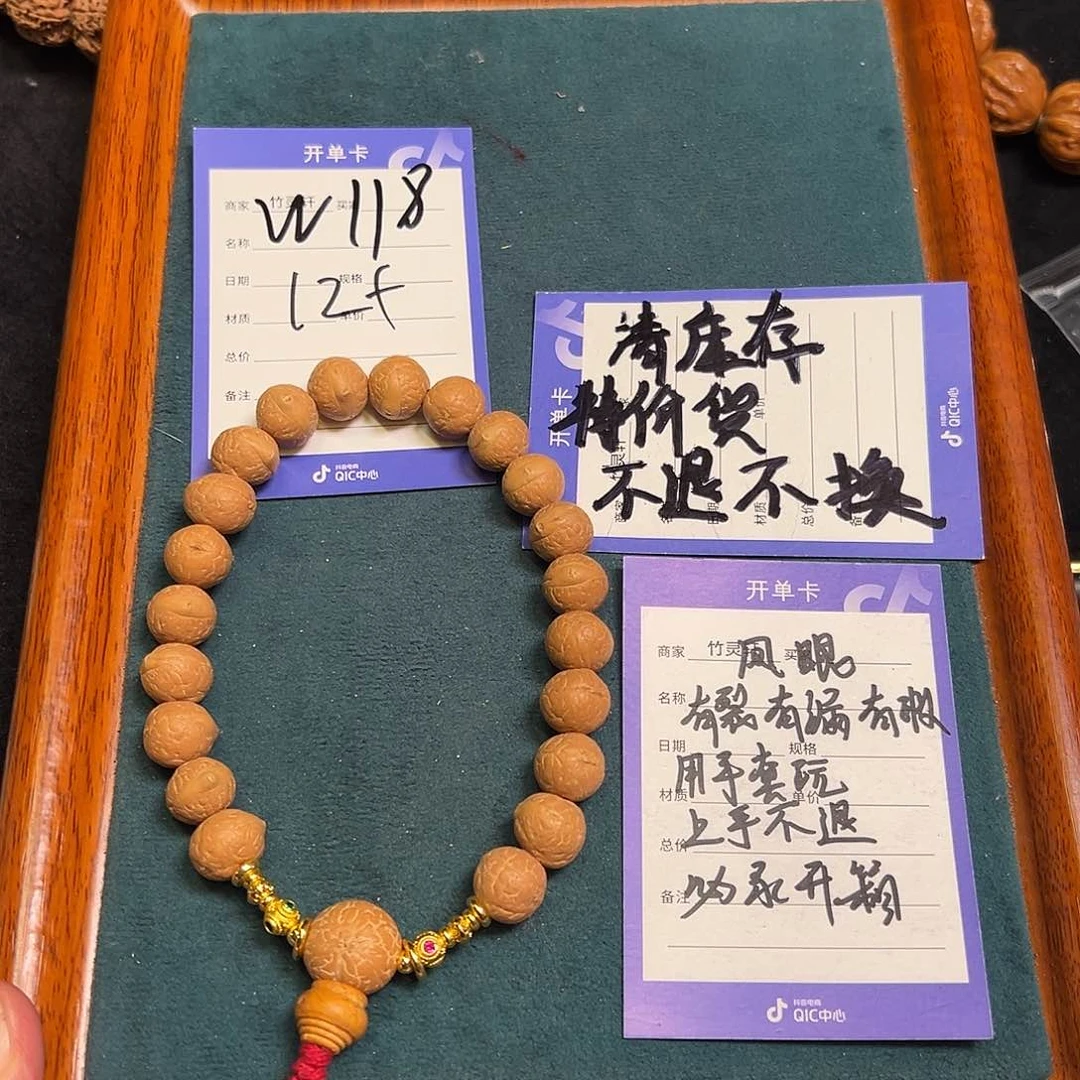 开单卡
商家 竹灵轩 买家
W118
名称
日期 规格
12f
材质 单价
总价
备注
抖音电商
QIC中心
开单卡
清库存
特价货
不退不换
抖音电商
QIC中心
开单卡
商家 竹灵轩
凤眼
名称
有裂有漏有收
日期 规格
用手卖玩
材质 单价
上手不退
总价
备注
抖音电商
QIC中心